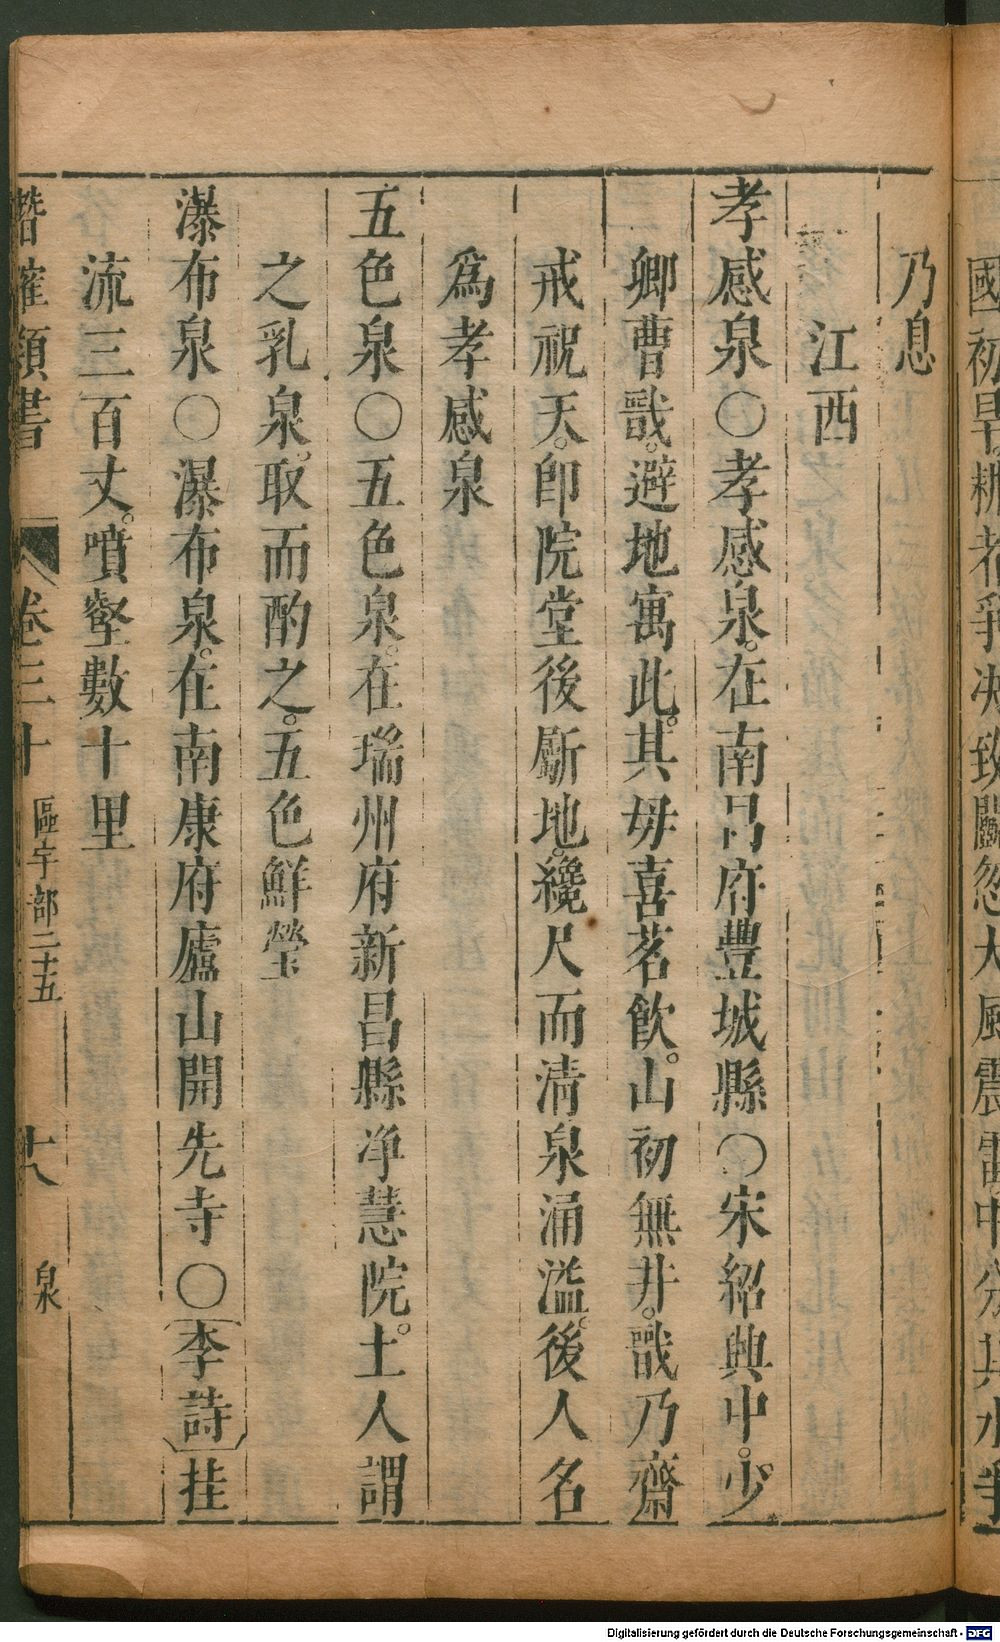 國初旱耕者爭決致鬭忽大風震雷中分其水爭
乃息
江西
孝感泉○孝感泉。在南昌府豐城縣○宋紹興中。少
卿曹戩。避地寓此。其毋喜茗飲。山初無井。戩乃齋
戒祝天。即院堂後斸地。纔尺而清泉涌溢。後人名
為孝感泉
五色泉○五色泉。在瑞州府新昌縣净慧院。土人謂
之乳泉。取而酌之。五色鮮瑩
瀑布泉○瀑布泉。在南康府廬山開先寺○李詩挂
流三百丈。噴壑數十里
潛確類書 卷三十 區宇部二十五 十八 泉
Digitalisierung gefördert durch die Deutsche Forschungsgemeinschaft - DFG